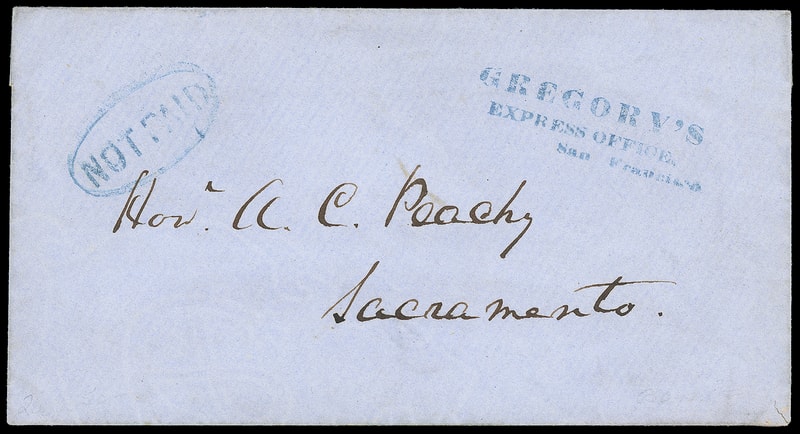 NOT PAID
GREGORY'S
EXPRESS OFFICE,
San Francisco
Hon. A. C. Peachy
Sacramento.